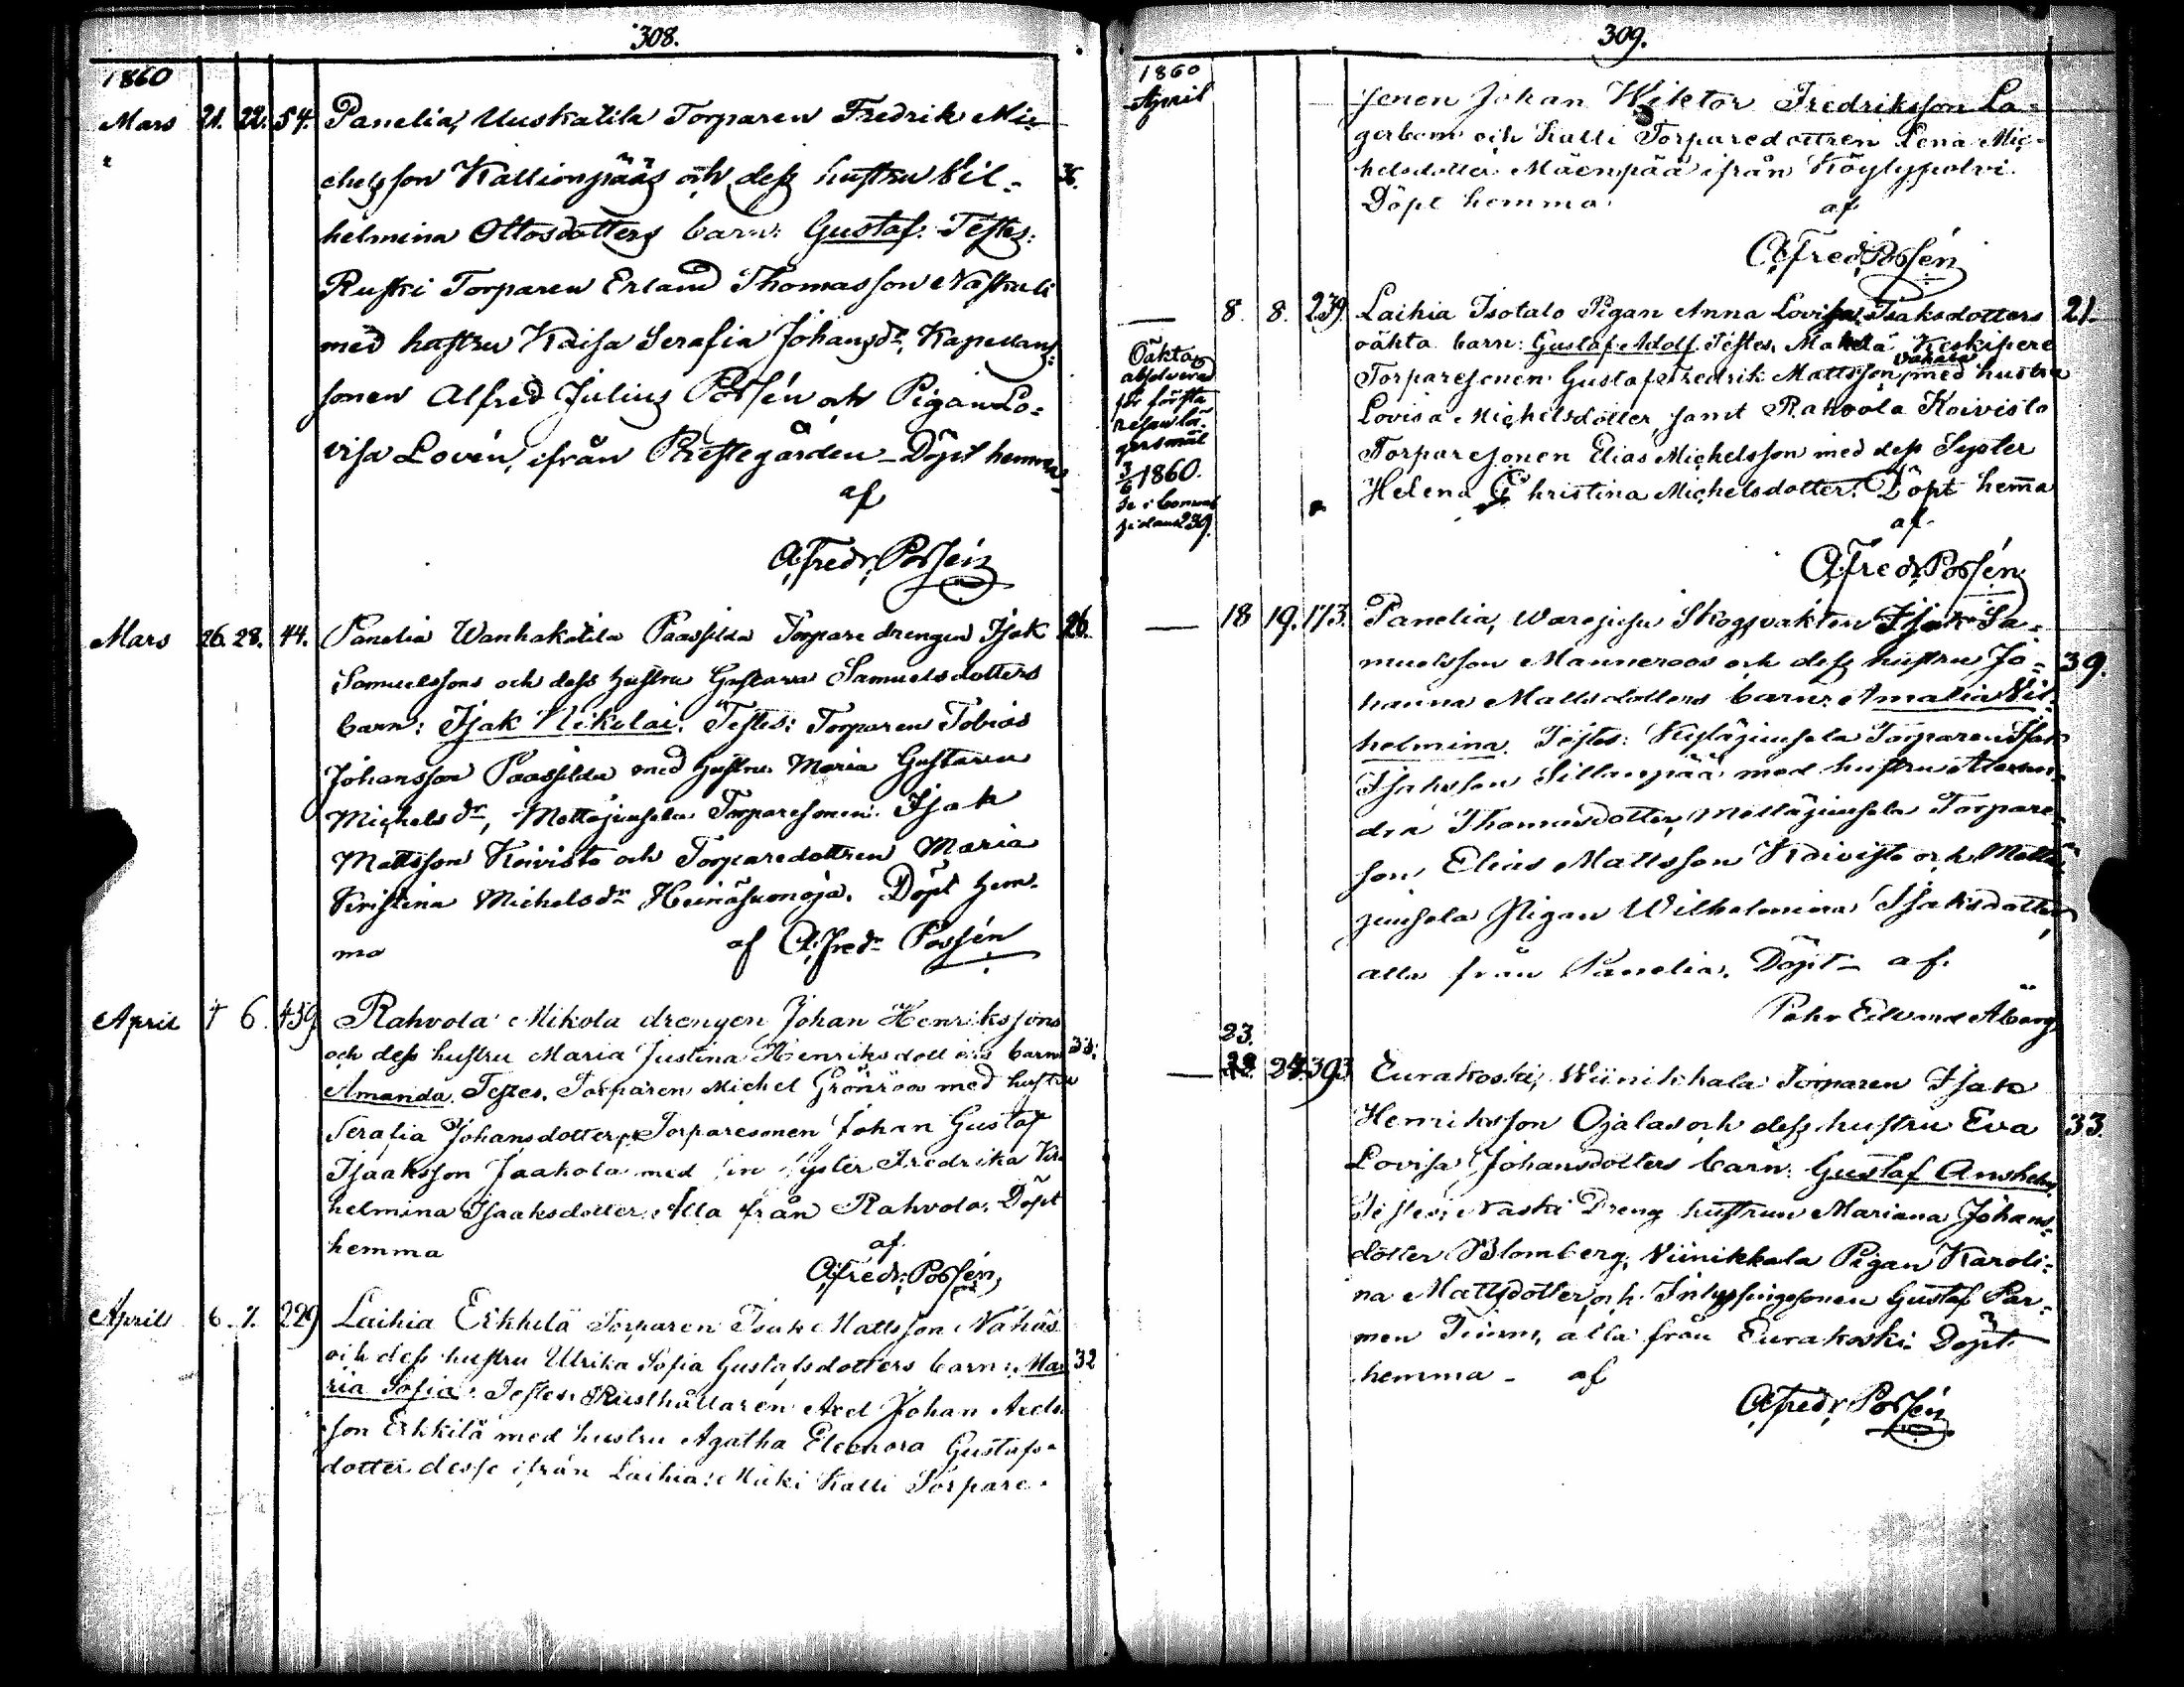 308.
1860
Mars 21. 22. 54. Panelia, Uuskatila Torparen Fredrik Mi-
chelsson Kallionpääs och dess hustru Vil- 36.
helmina Ottosdotters barn: Gustaf. Testes:
Ruski Torparen Erland Thomasson
med hustru Kaisa Serafia Johansdr, Kapellans-
sonen Alfred Julius Possén och Pigan Lo-
visa Lovén, ifrån Prestegården - Döpt hemma
af
Alfredr. Possén
Mars 26. 28. 44. Panelia Wanhakatila Paassilda Torpare drengen Isak 26.
Samuelssons och dess hustru Gustava Samuelsdotters
barn: Isak Nikolai. Testes: Torparen Tobias
Johansson Paassilda med hustru Maria Gustava
Michelsdr, Mettäjunsela Torparesonen Isak
Mattsson Koivisto och Torparedottren Maria
Kristina Michelsdr Heinäsuonoja. Döpt hem-
ma af Alfredr Possén
April 4 6. 459 Rahvola Mikola drengen Johan Henrikssons
och dess hustru Maria Justina Henriksdotters barn 33.
Amanda. Testes. Torparen Michel Grönroos med hustru
Serafia Johansdotter, Torparesonen Johan Gustaf
Isaaksson Jaakola med sin Syster Fredrika Vil-
helmina Isaaksdotter. Alla från Rahvola. Döpt
hemma af
Alfredr. Possén
April 6. 7. 229 Laihia Erkkilä Torparen Isak Mattsson
och dess hustru Ulrika Sofia Gustafsdotters barn: Ma- 32
ria Sofia. Testes: Rusthållaren Axel Johan Axels-
son Erkkilä med hustru Agatha Eleonora Gustafs-
dotter desse ifrån Laihia: Micki Kalli Torpare-
309.
1860
April
sonen Johan Wiktor Fredriksson La-
gerbom och Kalli Torparedottren Lena Mic-
helsdotter Mäenpää ifrån Köylypolvi.
Döpt hemma. af
Alfredr. Possén
8. 8. 239. Laihia Isotalo Pigan Anna Lovisa Isaksdotters 21.
oäkta barn: Gustaf Adolf. Testes. Keskipere
Torparesonen Gustaf Fredrik Mattsson med hustru
Lovisa Michelsdotter, samt Rahvola Koivisto
Torparesonen Elias Michelsson med dess Syster
Helena Christina Michelsdotter. Döpt hemma
af
Alfredr. Possén
Oäkta
absolverad
för första
resan lä-
gersmål
3/6 1860.
Se i
sidan 239.
18 19. 173. Panelia, Skogsvakten Isak Sa-
muelsson Manneroos och dess hustru Jo- 39.
hanna Mattsdotters barn: Amalia Vil-
helmina. Testes: Kyläjunsela Torparen Isak
Isaksson Sillanpää med hustru Alexan-
dra Thomasdotter, Mettäjunsela Torpare-
son Elias Mattsson Koivisto och Mettä-
junsela Pigan Wilhelmina Isaksdotter,
alla från Panelia. Döpt - af.
Edvard Åberg
23.
24. 393 Eurakoski, Wiinikkala Torparen Isak
Henriksson Ojalas och dess hustru Eva 33.
Lovisa Johansdotters barn: Gustaf Anshelm.
Testes: Naski Dreng hustrun Mariana Johans-
dotter Blomberg, Viinikkala Pigan Karoli-
na Mattsdotter och Inhysingesonen Gustaf Par-
men Timm, alla från Eurakoski. Döpt
hemma - af
Alfredr. Possén